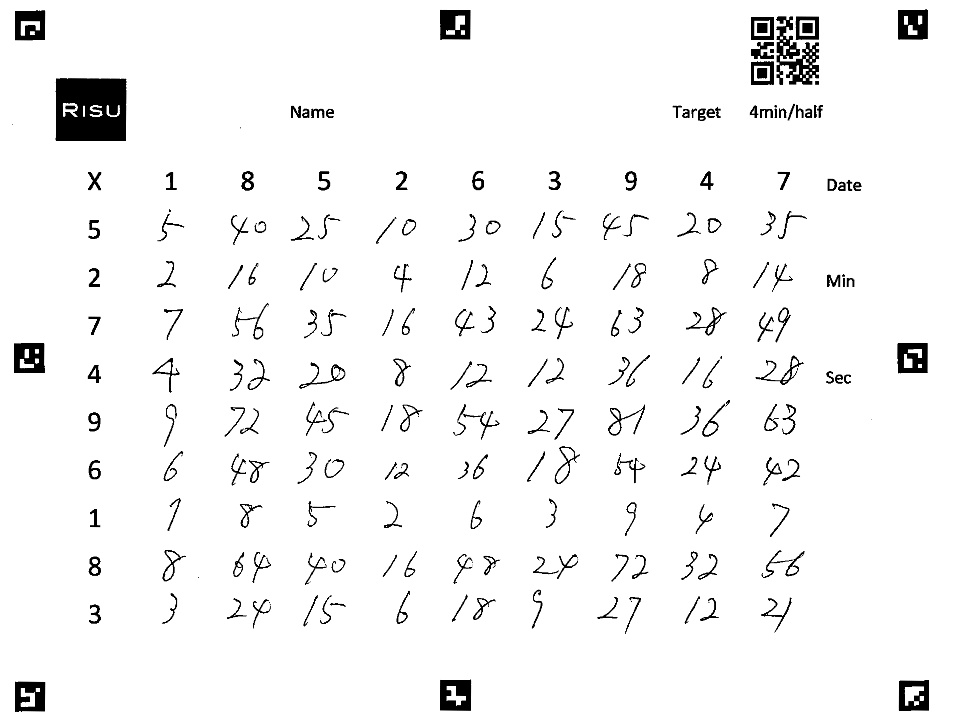 RISU Name Target 4min/half
X 1 8 5 2 6 3 9 4 7 Date
5 5 40 25 10 30 15 45 20 35
2 2 16 10 4 12 6 18 8 14 Min
7 7 56 35 16 43 24 63 28 49
4 4 32 20 8 12 12 36 16 28 Sec
9 9 72 45 18 54 27 81 36 63
6 6 48 30 12 36 18 54 24 42
1 1 8 5 2 6 3 9 4 7
8 8 64 40 16 48 24 72 32 56
3 3 24 15 6 18 9 27 12 21